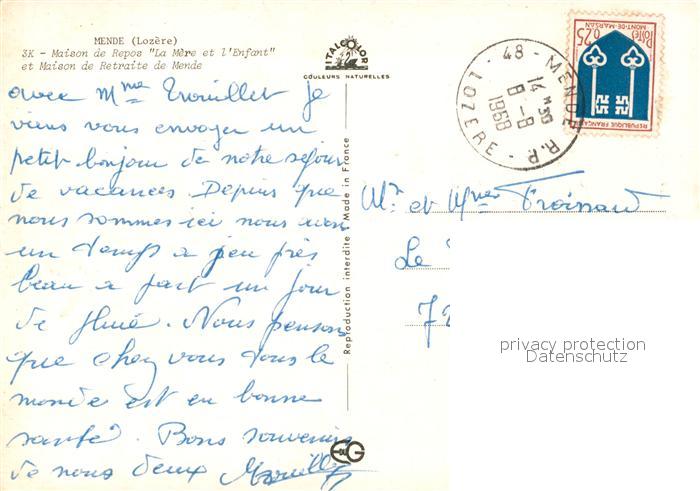 MENDE (Lozère)
3K - Maison de Repos "La Mère et l'Enfant"
et Maison de Retraite de Mende
ITALCOLOR
COULEURS NATURELLES
avec Mme Trouillet Je
viens vous envoyer un
petit bonjour de notre séjour
de vacances. Depuis que
nous sommes ici nous avons
un temps a peu près
beau a part un jour
de pluie. Nous pensons
que chez vous tous le
monde est en bonne
santé. Bons souvenirs
de nous deux
Reproduction interdite - Made in France
48 - MENDE R.P.
14H30
8 - 8
1968
LOZERE
0,25 Postes
MONT-DE-MARSAN
REPUBLIQUE FRANÇAISE
Mr et Mme Froissard
Le
72
privacy protection
Datenschutz